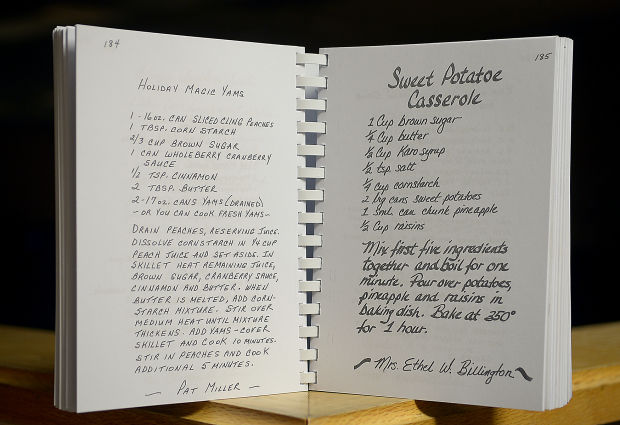 184
HOLIDAY MAGIC YAMS
1 - 16 OZ. CAN SLICED CLING PEACHES
1 TBSP. CORN STARCH
2/3 CUP BROWN SUGAR
1 CAN WHOLEBERRY CRANBERRY
SAUCE
1/2 TSP. CINNAMON
2 TBSP. BUTTER
2 - 17 OZ. CANS YAMS (DRAINED)
- OR YOU CAN COOK FRESH YAMS -
DRAIN PEACHES, RESERVING JUICE.
DISSOLVE CORNSTARCH IN 1/4 CUP
PEACH JUICE AND SET ASIDE. IN
SKILLET HEAT REMAINING JUICE,
BROWN SUGAR, CRANBERRY SAUCE,
CINNAMON AND BUTTER. WHEN
BUTTER IS MELTED, ADD CORN-
STARCH MIXTURE. STIR OVER
MEDIUM HEAT UNTIL MIXTURE
THICKENS. ADD YAMS - COVER
SKILLET AND COOK 10 MINUTES.
STIR IN PEACHES AND COOK
ADDITIONAL 5 MINUTES.
— PAT MILLER —
185
Sweet Potatoe
Casserole
1 Cup brown sugar
1/4 Cup butter
1/2 Cup Karo syrup
1/2 tsp. salt
1/4 cup cornstarch
2 lrg cans sweet potatoes
1 sml. can chunk pineapple
1/2 Cup raisins
Mix first five ingredients
together and boil for one
minute. Pour over potatoes,
pineapple and raisins in
baking dish. Bake at 350°
for 1 hour.
~ Mrs. Ethel W. Billington ~